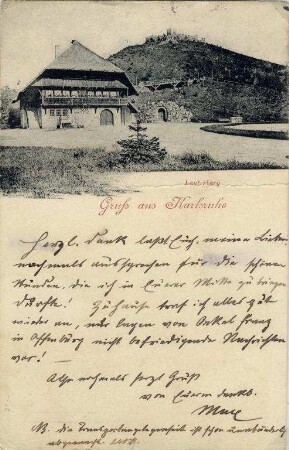 Lauterberg
Gruß aus Karlsruhe
Herzl. Dank laßt Euch, meine Lieben
nochmals aussprechen für die schönen
Stunden, die ich in Eurer Mitte zubringen
durfte! Zuhause traf ich alles gut
wieder an, nur lagen von Onkel Franz
in Offenburg nicht befriedigende Nachrichten
vor!
Also nochmals herzl. Gruß
von Eurem dankb.
Max
NB. die Transport ist schon
abgemacht.